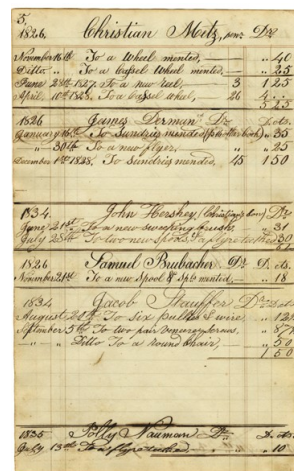 5.
1826. Christian Moitz, senr Dr
November 16th To a wheel mented, — " 40
Ditto " — To a cassel wheel mented — " 25
June 28th 1827. To a new reel, — 3 1 25
April 10th 1828. To a cassel wheel, 26
5 25
1826 James Dorman Dr D. cts.
January 16th To Sundries mented " 35
— " 30th To a new flyer, " 25
December 1st 1828. To Sundries mented, 45 1 50
1834. John Hershey (Christian's son) Dr
June 21st To a new sweeping brush, 31
July 28th To two new spools & a flyer teethed 30
1826 Samuel Brubacher Dr D. cts.
November 21st To a new Spool & Spts mented — " 18
1834 Jacob Stauffer Dr D cts
August 28th To six pulls & wire " 12½
September 5th To two pair screws, " 87½
— " — " Ditto To a round chair, — " 50
1 50
1835 Polly Nauman Dr D. cts.
July 13th To a flyer teethed — " 10